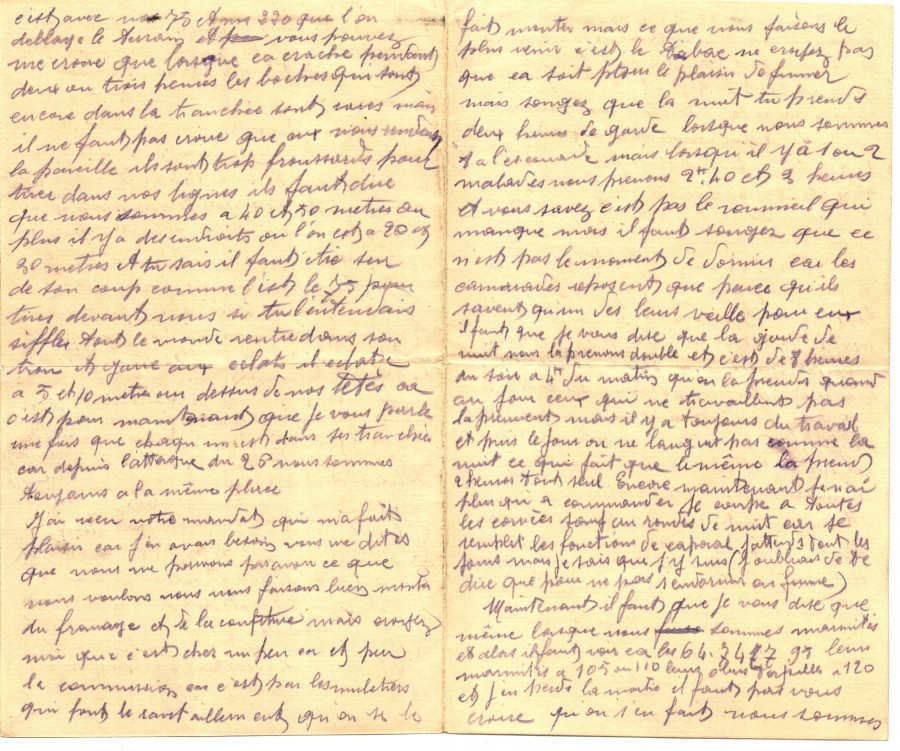 c'est avec nos 75 et nos 220 que l'on
deblaye le terrain et vous pouvez
me croire que lorsque ca crache pendant
deux ou trois heures les boches qui sont
encore dans la tranchée sont rares mais
il ne faut pas croire que eux nous rendent
la pareille ils sont trop froussards pour
tirer dans nos lignes il faut dire
que nous sommes a 40 et 50 metres au
plus il y a des endroits ou l'on est a 20 et
30 metres et tu sais il faut etre sur
de son coup comme l'est le 75 pour
tirer devant nous si tu l'entendais
siffler tout le monde rentre dans son
trou et gare aux eclats il eclate
a 5 et 10 metres au dessus de nos têtes ca
c'est pour maintenant que je vous parle
une fois que chaqu un est dans ses tranchées
car depuis l'attaque du 26 nous sommes
toujours a la même place
J'ai recu votre mandat qui m'a fait
plaisir car j'en avais besoin vous me dites
que nous ne pouvons pas avoir ce que
nous voulons nous nous faisons bien monter
du fromage et de la confiture mais croyez
moi que c'est cher un peu ca et peu
la commission car c'est par les muletiers
qui font le ravitaillement qu'on se le
fait monter mais ce que nous faisons le
plus venir c'est le Tabac ne croyez pas
que ca soit pour le plaisir de fumer
mais songez que la nuit tu prends
deux heures de garde lorsque nous sommes
a l'escouade mais lorsqu'il y a 1 ou 2
malades nous prenons 2h.40 et 3 heures
et vous savez c'est pas le sommeil qui
manque mais il faut songez que ce
n'est pas le moment de dormir car les
camarades reposent que parce qu'ils
savent qu'un des leurs veille pour eux
il faut que je vous dise que la garde de
nuit nous la prenons double et c'est de 8 heures
du soir a 4h du matin qu'on la prends quand
au jour ceux qui ne travaillent pas
la prennent mais il y a toujours du travail
et puis le jour on ne languit pas comme la
nuit ce qui fait que le même la prend
2 heures tout seul. Encore maintenant je n'ai
plus qu'a commander je coupe a toutes
les corvées sauf au rondes de nuit car je
remplit les fonctions de caporal j'attends tout les
jours mais je sais que j'y suis (J'oubliais de te
dire que pour ne pas s'endormir on fume)
Maintenant il faut que je vous dise que
même lorsque nous sommes marmités
et alors il faut voir ca les 64.
marmités a 105 ou 110 leurs obus a 120
et j'en perds la moitié il faut pas vous
croire qu'on s'en fait nous sommes